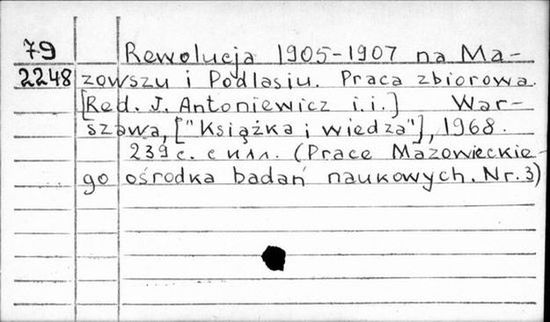 79 Rewolucja 1905-1907 na Ma-
2248 zowszu i Podlasiu. Praca zbiorowa.
[Red. J. Antoniewicz i.i.] War-
szawa, ["Książka i wiedza"], 1968.
239 с. с илл. (Prace Mazowieckie-
go ośrodka badań naukowych. Nr. 3)